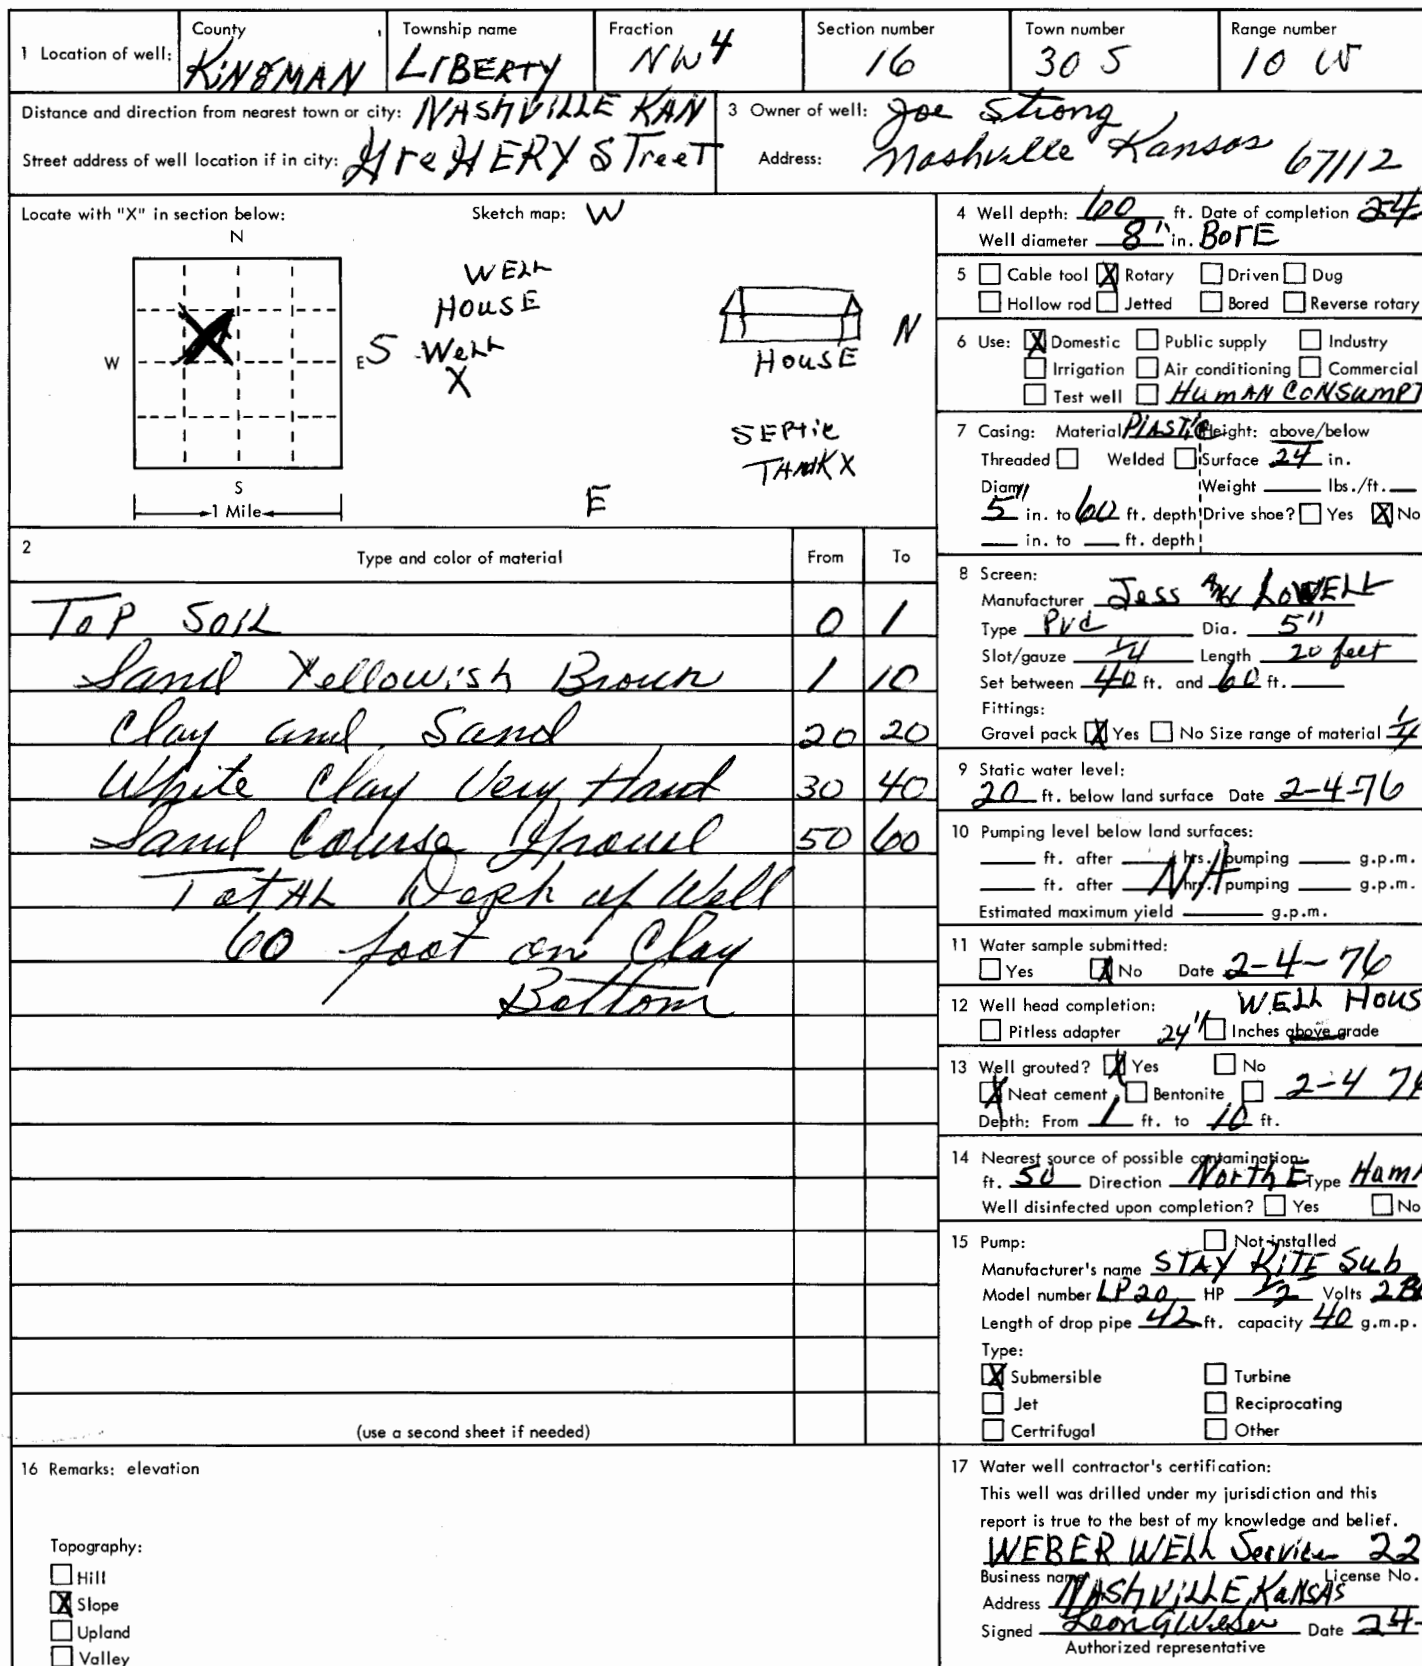 1 Location of well:
County
KINGMAN
Township name
LIBERTY
Fraction
NW 4
Section number
16
Town number
30 S
Range number
10 W
Distance and direction from nearest town or city: NASHVILLE KAN
Street address of well location if in city: STreeT
3 Owner of well: Joe Strong
Address: Nashville Kansas 67112
Locate with "X" in section below:
N
W
E
S
1 Mile
Sketch map: W
WELL
HOUSE
S
Well
X
HOUSE
N
SEPTIC
TANK X
E
2
Type and color of material
From
To
ToP SOIL 0 1
Sand Yellowish Brown 1 10
Clay and Sand 20 20
White Clay Very Hard 30 40
Sand Course Gravel 50 60
TotAL Deph of Well
60 foot on Clay
Bottom
(use a second sheet if needed)
4 Well depth: 60 ft. Date of completion 2-4-
Well diameter 8" in. BorE
5 Cable tool X Rotary Driven Dug
Hollow rod Jetted Bored Reverse rotary
6 Use: X Domestic Public supply Industry
Irrigation Air conditioning Commercial
Test well HUMAN CONSUMPT
7 Casing: Material PLASTIC Height: above/below
Threaded Welded Surface 24 in.
Diam. Weight lbs./ft.
5" in. to 60 ft. depth Drive shoe? Yes X No
in. to ft. depth
8 Screen:
Manufacturer Jess And LOWELL
Type PVC Dia. 5"
Slot/gauze 1/4 Length 20 feet
Set between 40 ft. and 60 ft.
Fittings:
Gravel pack X Yes No Size range of material 1/4
9 Static water level:
20 ft. below land surface Date 2-4-76
10 Pumping level below land surfaces:
ft. after hrs. pumping g.p.m.
NA
ft. after hrs. pumping g.p.m.
Estimated maximum yield g.p.m.
11 Water sample submitted:
Yes X No Date 2-4-76
12 Well head completion: WELL HOUS
Pitless adapter 24" Inches above grade
13 Well grouted? X Yes No
X Neat cement Bentonite 2-4 76
Depth: From 1 ft. to 10 ft.
14 Nearest source of possible contamination:
ft. 50 Direction North E Type
Well disinfected upon completion? Yes No
15 Pump: Not installed
Manufacturer's name STAY RITE Sub
Model number LP20 HP 1/2 Volts
Length of drop pipe 42 ft. capacity 40 g.m.p.
Type:
X Submersible Turbine
Jet Reciprocating
Certrifugal Other
16 Remarks: elevation
Topography:
Hill
X Slope
Upland
Valley
17 Water well contractor's certification:
This well was drilled under my jurisdiction and this
report is true to the best of my knowledge and belief.
WEBER WELL Service 22
Business name License No.
Address NASHVILLE, KANSAS
Signed Date 2-4-
Authorized representative